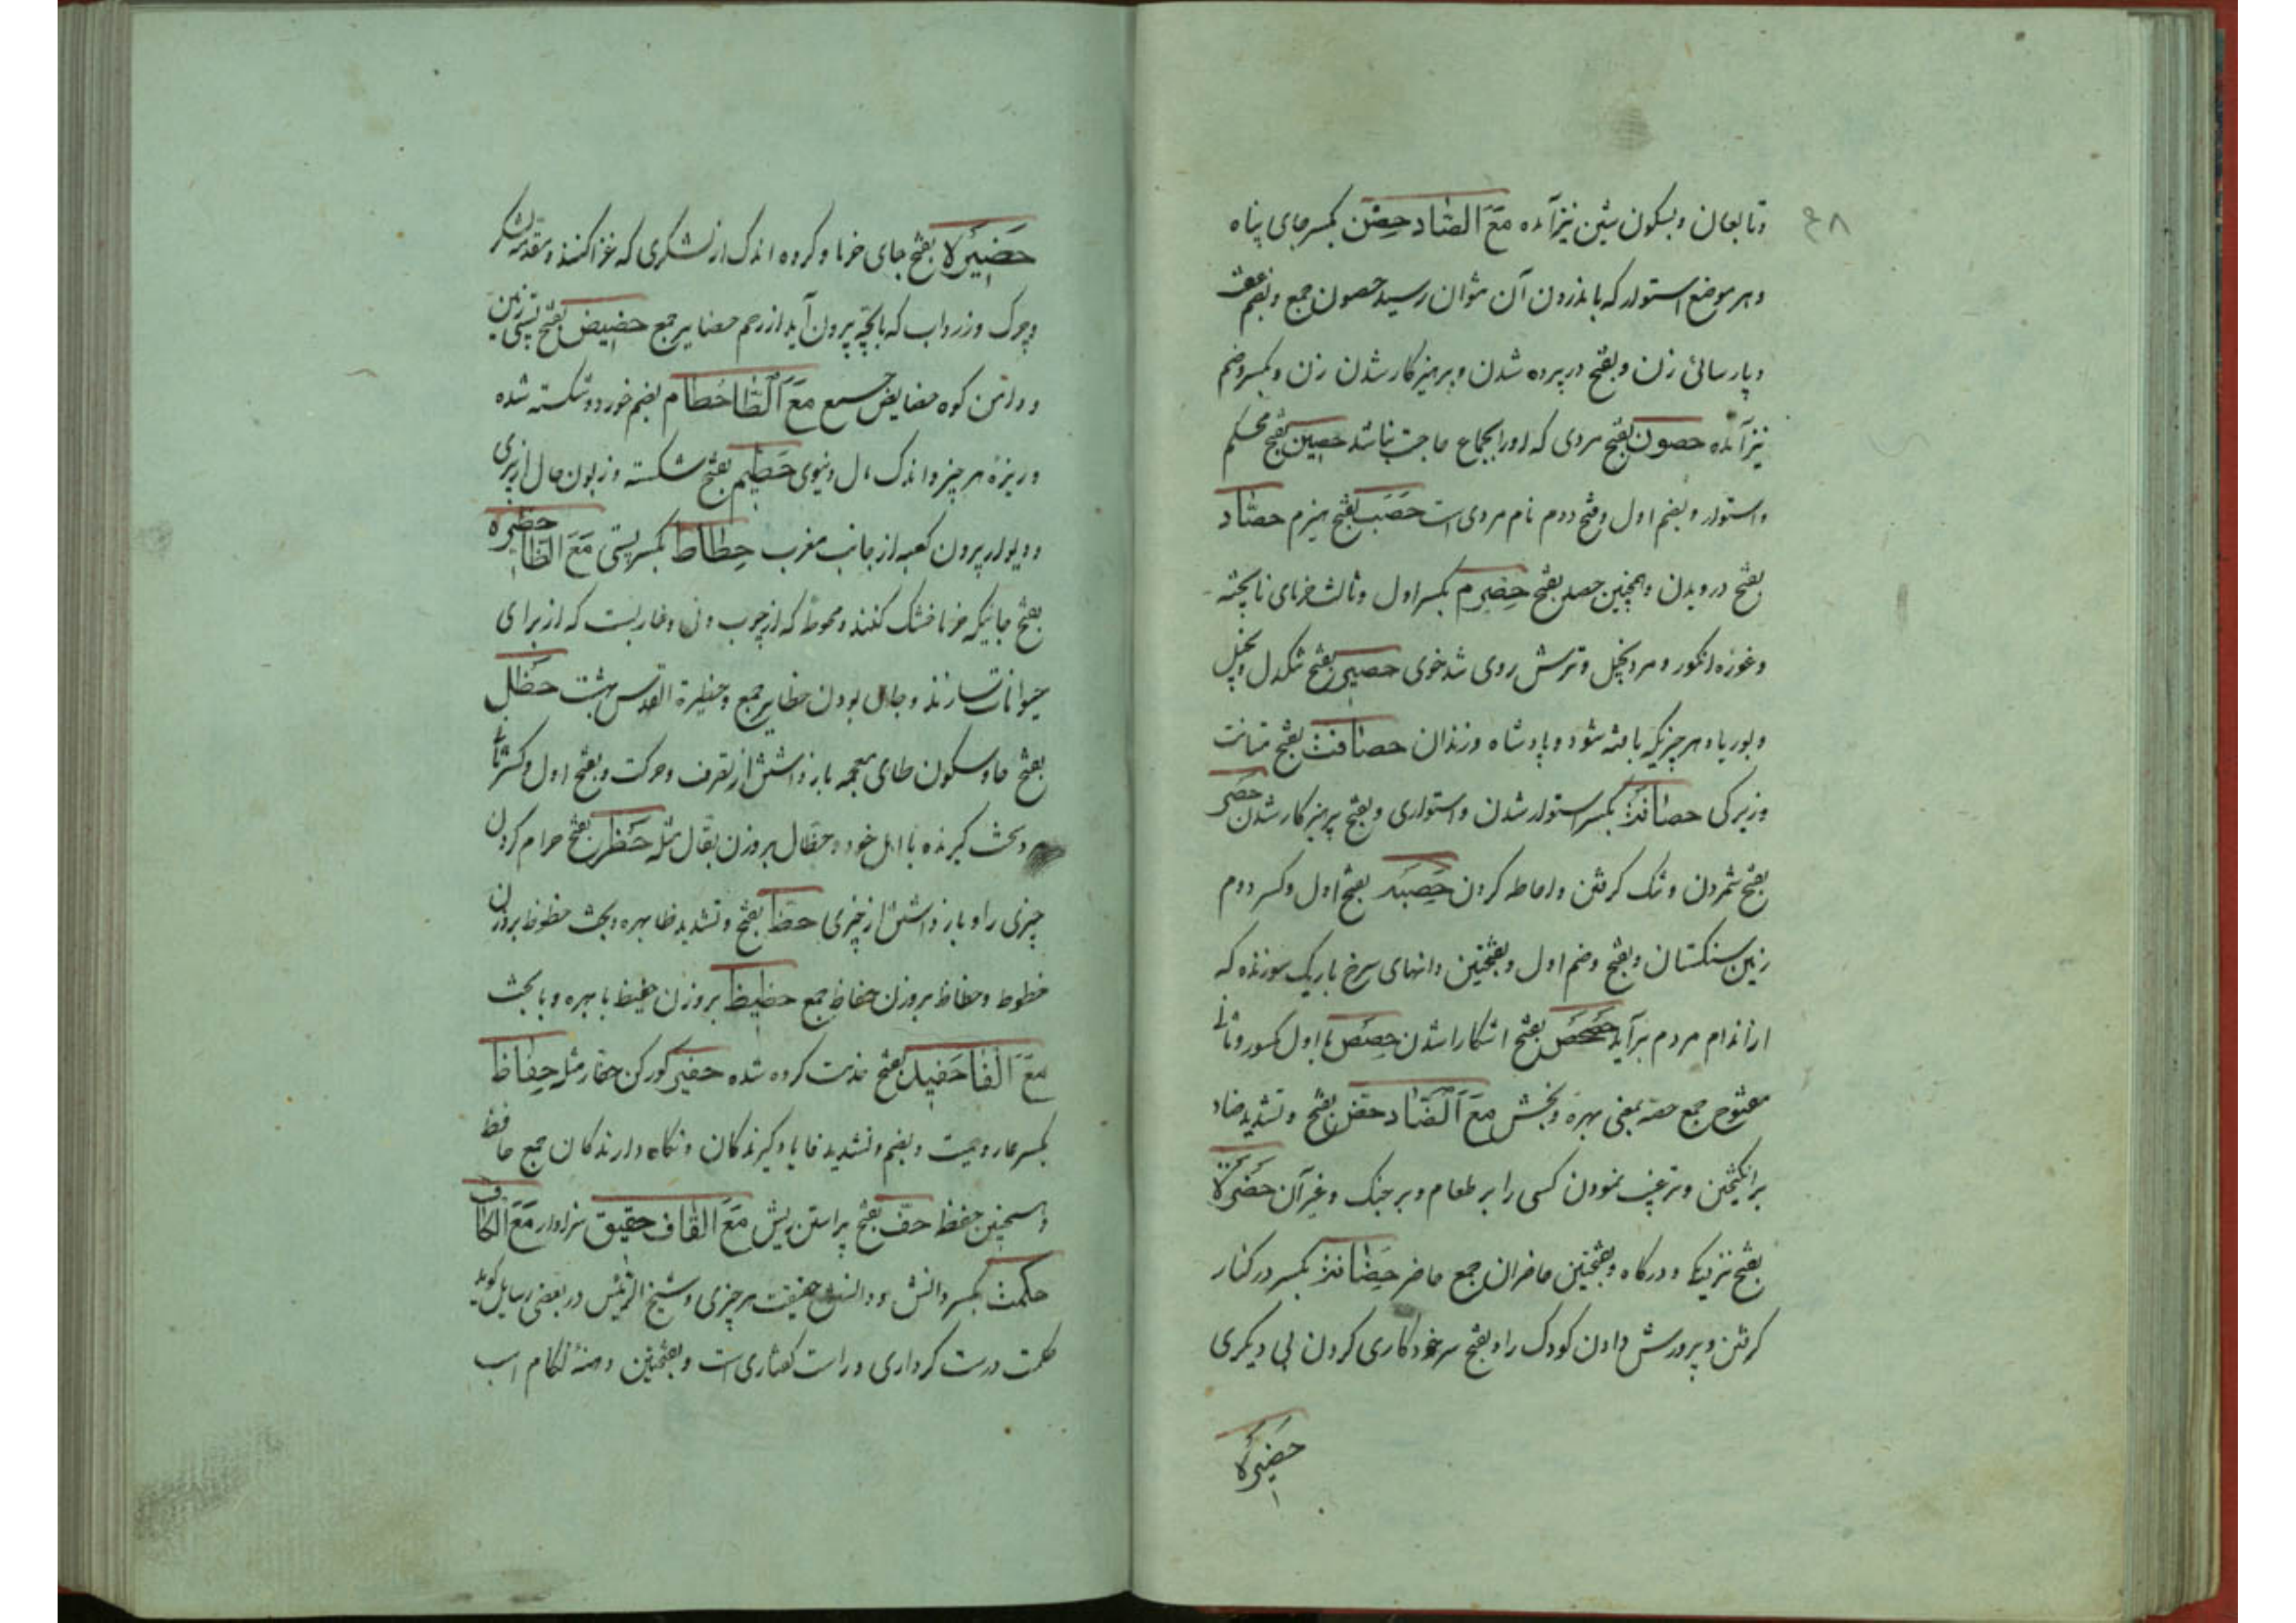 ۶۸
وتابعان وبسکون شین نیز آمده مَعَ الصّاد حِصْن بکسر جای پناه
وهر موضع استوار که باندرون آن نتوان رسید حصون جمع وبضم عفت
وپارسائی زن وبفتح در پرده شدن وپرهیزکار شدن زن وبکسر وضم
نیز آمده حصون بفتح مردی که اورا بجماع حاجت نباشد حصین بفتح محکم
واستوار وبضم اول وفتح دوم نام مردی است حَصَب بفتح هیزم حصاد
بفتح درویدن وهمچنین حصد بفتح حِصْرِم بکسر اول وثالث خرمای ناپخته
وغوزه انکور ومرد بخیل وترش روی تندخوی حصیر بفتح تنکدل وبخیل
وبوریا وهر چیزیکه بافته شود وپادشاه وزندان حصافت بفتح متانت
وزیرکی حصانة بکسر استوار شدن واستواری وبفتح پرهیزکار شدن حَصْر
بفتح شمردن وتنک کرفتن واحاطه کردن حَصِبه بفتح اول وکسر دوم
زمین سنکستان وبفتح وضم اول وبفتحتین دانهای سرخ باریک سوزنده که
از اندام مردم برآید حصحص بفتح اشکارا شدن حِصَص با اول مکسور وثانی
مفتوح جمع حصه بمعنی بهره وبخش مَعَ الضّاد حض بفتح وتشدید ضاد
برانکیختن وترغیب نمودن کسی را بر طعام وبر جنک وغیر آن حَضْرَة
بفتح نزدیک ودرکاه وبفتحتین حاضران جمع حاضر حِضَانة بکسر در کنار
کرفتن وپرورش دادن کودک را وبفتح سرخود کاری کردن بی دیکری
حَضِیرَة
حَضِیرَة بفتح جای خرما وکروه اندک از لشکری که غزا کنند ومقدمه لشکر
وچرک وزرداب که با بچّه بیرون آید از رحم حضایر جمع حضیض بفتح پستی زمین
ودامن کوه حضایض جمع مَعَ الطّا حُطام بضم خورد وشکسته شده
وریزهٔ هر چیز واندک مال دنیوی حَطِیم بفتح شکسته وزبون حال از پیری
ودیوار بیرون کعبه از جانب مغرب حِطاط بکسر پستی مَعَ الظّا حظیره
بفتح جائیکه خرما خشک کنند ومحوطه که از چوب ونی وخار بست که از برای
حیوانات سازند وجای بودن حظایر جمع وحظیرة القدس بهشت حَظَل
بفتح حا وسکون ظای معجمه باز داشتن از تصرف وحرکت وبفتح اول وکسر ثانی
مرد بحث کیرنده با اهل خود وحظال بر وزن بقال مثله حَظْر بفتح حرام کردن
چیزی را وباز داشتن از چیزی حَظّ بفتح وتشدید ظا بهره وبخت حظوظ بر وزن
خطوط وحظاظ بر وزن حفاظ جمع حظیظ بر وزن حفیظ با بهره وبا بخت
مَعَ الفا حَفِید بفتح خدمت کرده شده حَفِیر کورکن حفار مثله حِفَاظ
بکسر عار وحمیت وبضم وتشدید فا یاد کیرندکان ونکاه دارندکان جمع حافظ
وهمچنین حفظ حَفّ بفتح پیراستن ریش مَعَ القاف حقیق سزاوار مَعَ الکاف
حکمت بکسر دانش ودانستن حقیقت هر چیزی وشیخ الرئیس در بعضی رسایل کوید
حکمت درست کرداری وراست کفتاری است وبفتحتین دهنهٔ لکام اسب